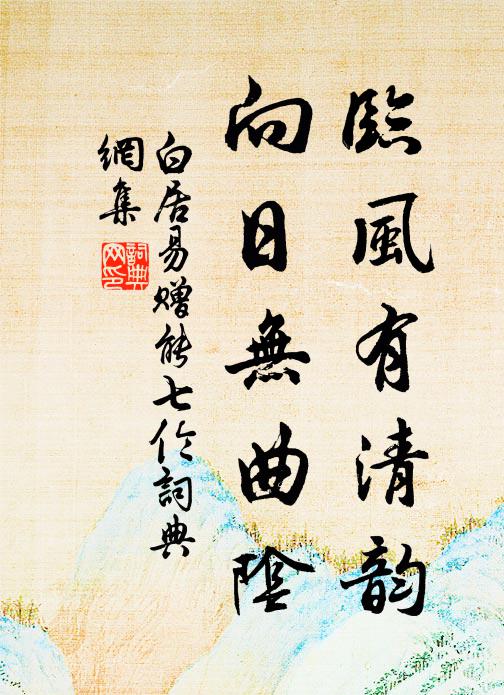 臨風有清韵
向日無曲陰
白居易贈能七伦詞典
網集
詞典网印